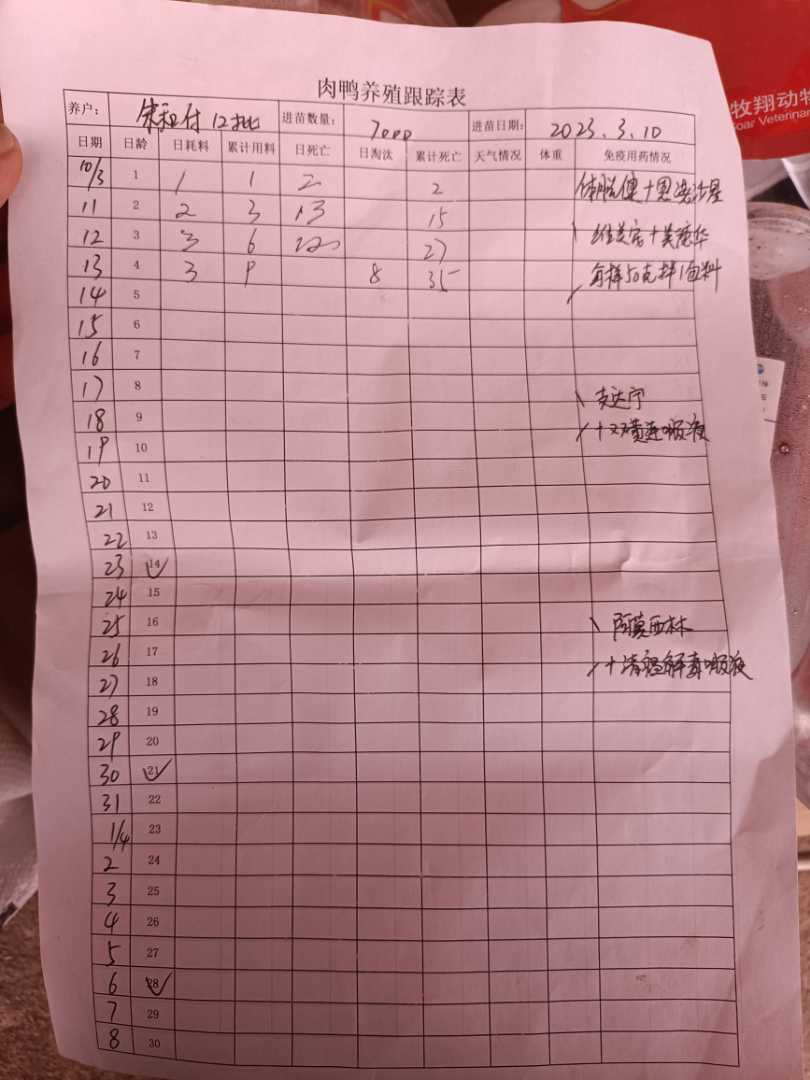 肉鸭养殖跟踪表
养户: 付 12批 进苗数量: 7000 进苗日期: 2023.3.10
日期 日龄 日耗料 累计用料 日死亡 日淘汰 累计死亡 天气情况 体重 免疫用药情况
10/3 1 1 1 2 2
11 2 2 3 13 15
12 3 3 6 12 27
13 4 3 9 8 35 每样50克拌1包料
14 5
15 6
16 7
17 8
18 9 +双黄连口服液
19 10
20 11
21 12
22 13
23 14 ✓
24 15
25 16 阿莫西林
26 17 +清瘟解毒口服液
27 18
28 19
29 20
30 21 ✓
31 22
1/4 23
2 24
3 25
4 26
5 27
6 28 ✓
7 29
8 30
牧翔动物
oar Veterinar